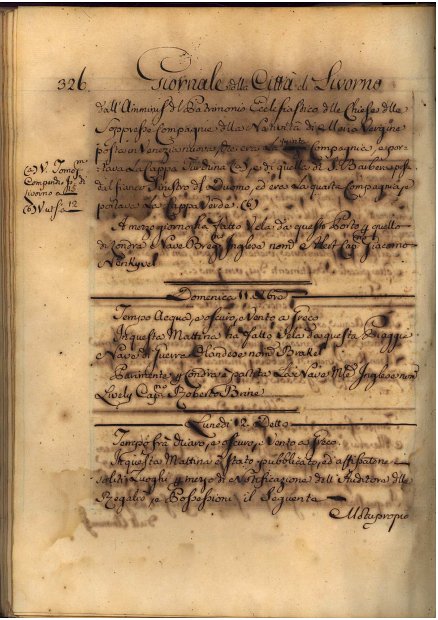 326.
Giornale della Città di Livorno
dall'Amminis. del Patrimonio Ecclesiastico delle Chiese della
Soppresse Compagnie della Natività di Maria Vergine
posta in Venezia nuova che era la Compagnia, e por-
tava la Cappa Turchina (a), e di quella di S. Barbera pos.
dal fianco sinistro del Duomo, ed era la quarta Compagnia, e
portava la Cappa Verde. (b)
(a) V. Tomo
Compendio di
Livorno a
(b) V. a 12
A mezzo giorno ha fatto Vela da questo Porto p. quello
di Londra la Nave Inglese nom. Cap. Giacomo
Domenica 11. Xbre
Tempo Acqua, e oscuro, e Vento a Greco
In questa Mattina ha fatto Vela da questa Spiaggia
la Nave da Guerra Olandese nom.
Parimente p. Londra è partita la Nave Inglese nom.
Lively Cap.no Roberto
Lunedì 12. Detto
Tempo frà chiaro, e oscuro, e Vento a Greco.
In questa Mattina è stato pubblicato, ed affisso ne
soliti Luoghi p. mezzo di Notificazione dell'Auditore delle
Regalie, e Possessioni il Seguente
Motuproprio